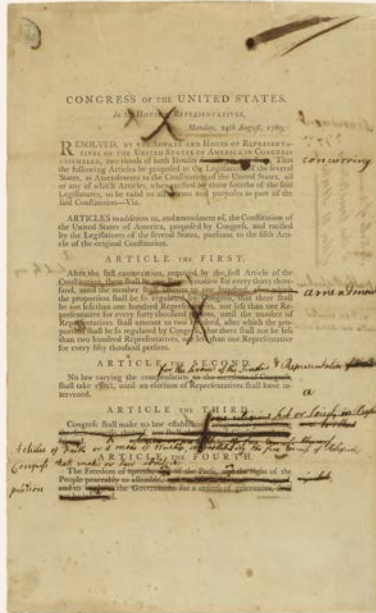 CONGRESS OF THE UNITED STATES.
In the HOUSE of REPRESENTATIVES,
Monday, 24th August, 1789,
RESOLVED, BY THE SENATE AND HOUSE OF REPRESENTA-
TIVES OF THE UNITED STATES OF AMERICA IN CONGRESS
ASSEMBLED, two thirds of both Houses That
concurring
the following Articles be proposed to the Legislatures of the several
States, as Amendments to the Constitution of the United States, all
or any of which Articles, when ratified by three fourths of the said
Legislatures, to be valid to all intents and purposes as part of the
said Constitution—Viz.
ARTICLES in addition to, and amendment of, the Constitution of
the United States of America, proposed by Congress, and ratified
by the Legislatures of the several States, pursuant to the fifth Arti-
cle of the original Constitution.
ARTICLE THE FIRST.
After the first enumeration, required by the first Article of the
Constitution, there shall be for every thirty thou-
sand, until the number shall amount to one hundred, after which
amendment
the proportion shall be so regulated by Congress, that there shall
be not less than one hundred Representatives, nor less than one Re-
presentative for every forty thousand persons, until the number of
Representatives shall amount to two hundred, after which the pro-
portion shall be so regulated by Congress, that there shall not be less
than two hundred Representatives, nor less than one Representative
for every fifty thousand persons.
ARTICLE THE SECOND.
for the service of the Senators & Representatives
No law varying the compensation
shall take effect, until an election of Representatives shall have in-
tervened.
a
ARTICLE THE THIRD.
Congress shall make no law
Articles of Faith or a mode of Worship, or prohibiting the free exercise of Religion,
Congress shall make no law
ARTICLE THE FOURTH.
The Freedom of Speech, of the Press, and the right of the
People peaceably to assemble,
petition
and to the Government for a redress of grievances, shall